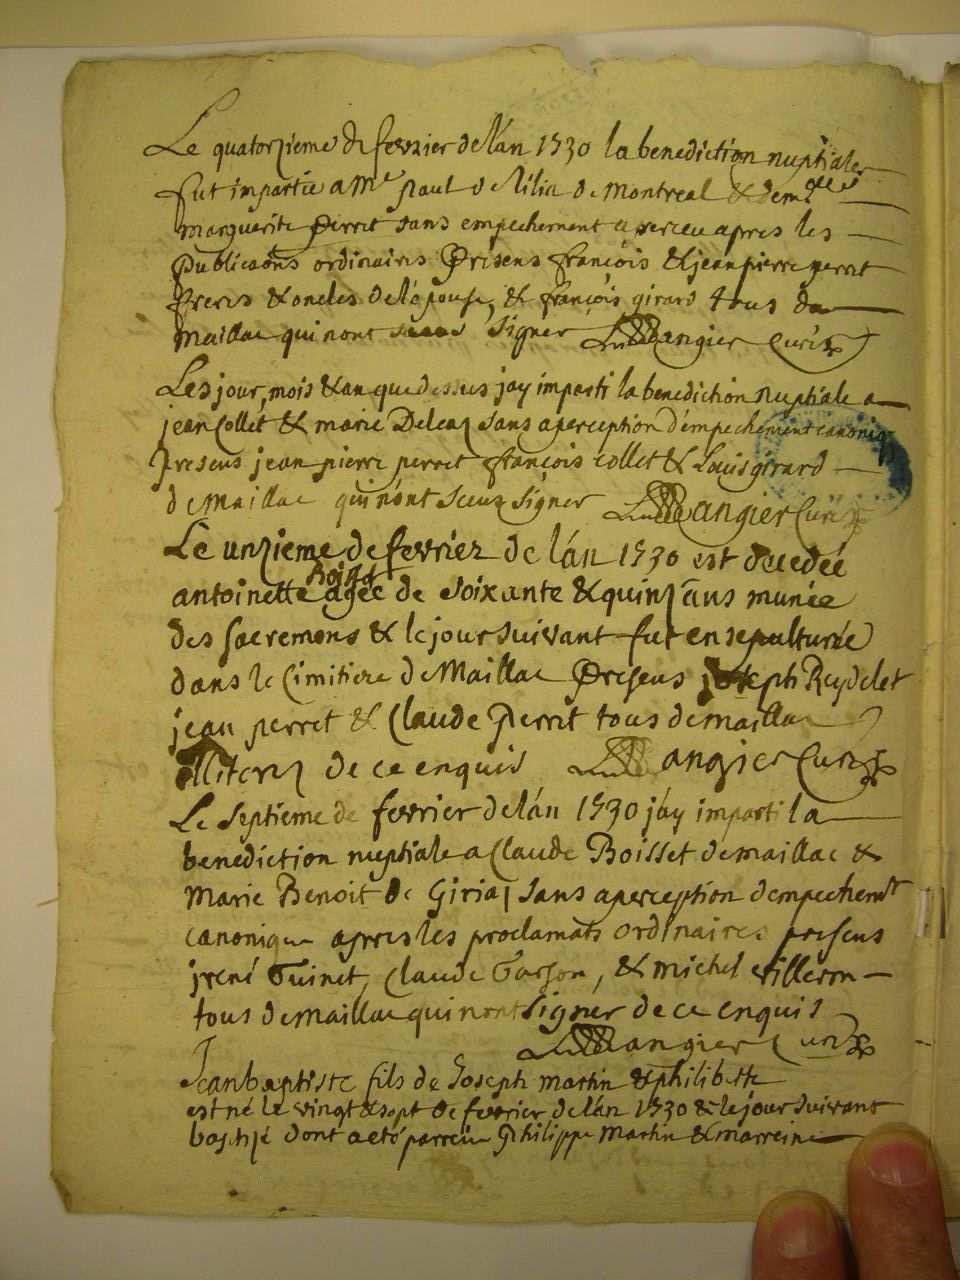 Le quatorzieme de fevrier de l'an 1730 la benediction nuptiale
fut impartie a Mre paul de lilia de montreal & demlle
marguerite perret sans empechement aperceu apres les
publicaons ordinaires Presens françois & jean pierre perret
freres & oncles de l'epouse, & françois girard tous de
maillac qui n'ont signer Langier Curé
Les jour, mois & an que dessus jay imparti la benediction nuptiale a
jean Collet & marie Deleaz sans aperception d'empechement canoniq
Presens jean pierre perret françois collet & Louis girard
de Maillac qui n'ont sceuz signer Langier Curé
Le unzieme de fevrier de l'an 1730 est decedée
antoinette Boisset agée de soixante & quinz ans munie
des sacremens & le jour suivant fut ensepulturée
dans le Cimitiere de Maillac Presens joseph Reydelet
jean perret & Claude Perrit tous de maillac
illiterez de ce enquis Langier Curé
Le Septieme de fevrier de l'an 1730 j'ay imparti la
benediction nuptiale a Claude Boisset de maillac &
Marie Benoit de Giria sans aperception d'empechemt
canonique apres les proclamats ordinaires presens
jrené Guinet, Claude Garson, & michel villeron
tous de maillac qui n'ont signer de ce enquis
Langier Curé
Jean baptiste fils de Joseph martin & philiberte
est né le vingt & sept de fevrier de l'an 1730 & le jour suivant
baptisé dont a eté parrein Philippe Martin & marreine